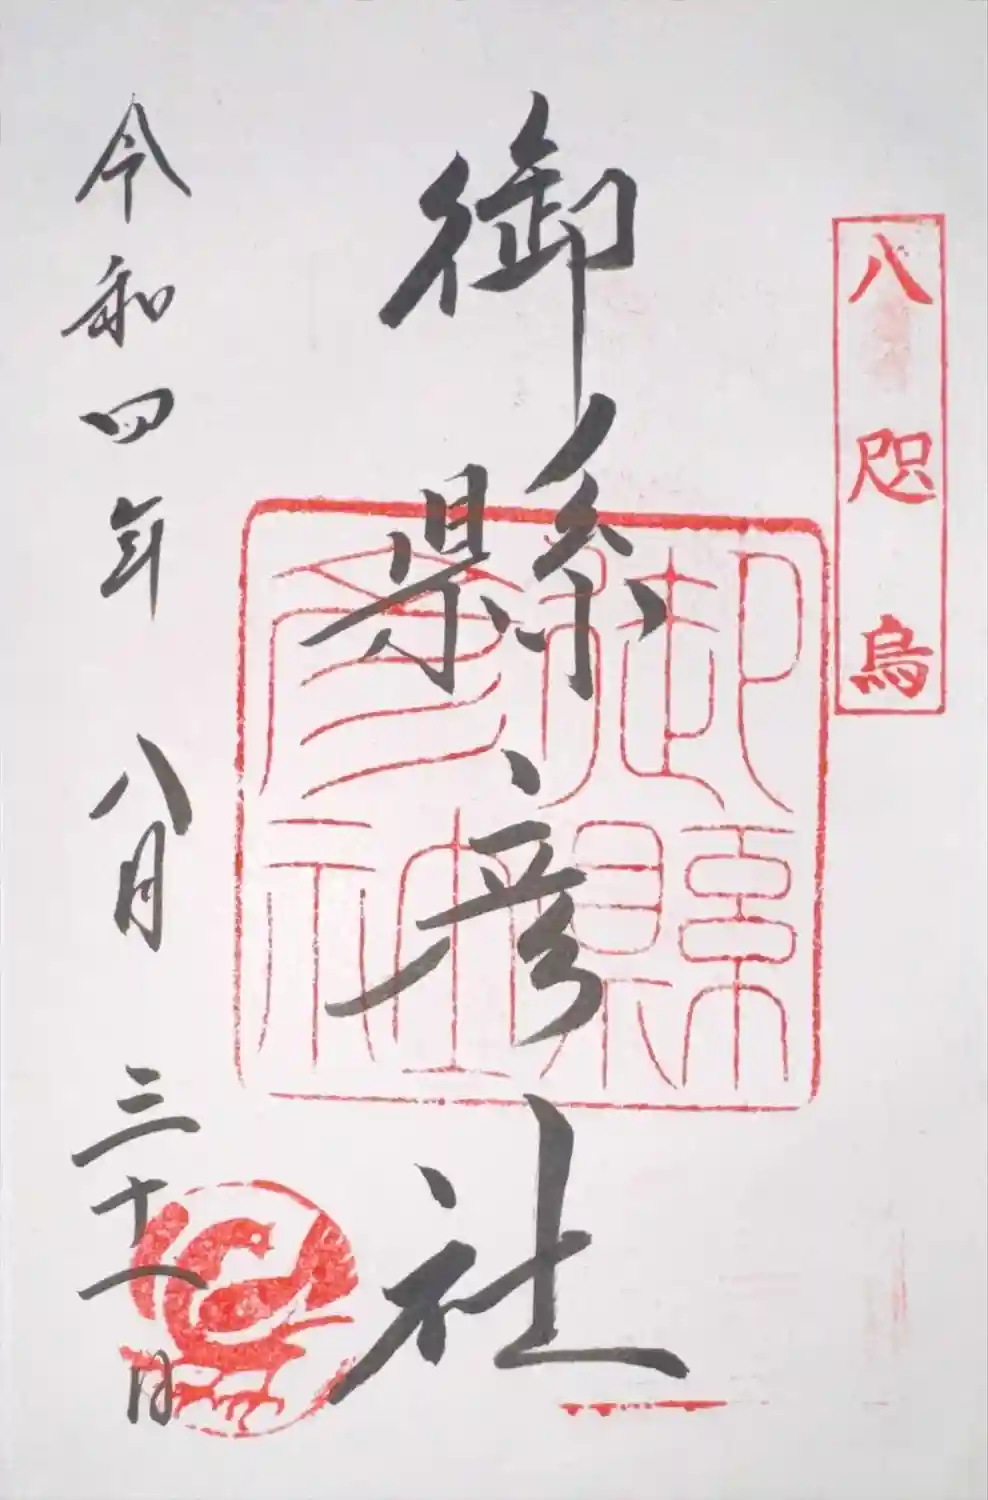 八咫烏
御縣彦社
御縣
彦社
令和四年八月三十一日